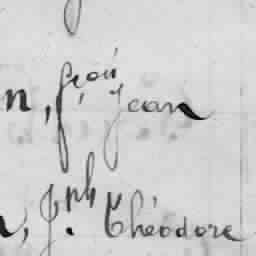 n, fçois Jean
, Jph Théodore